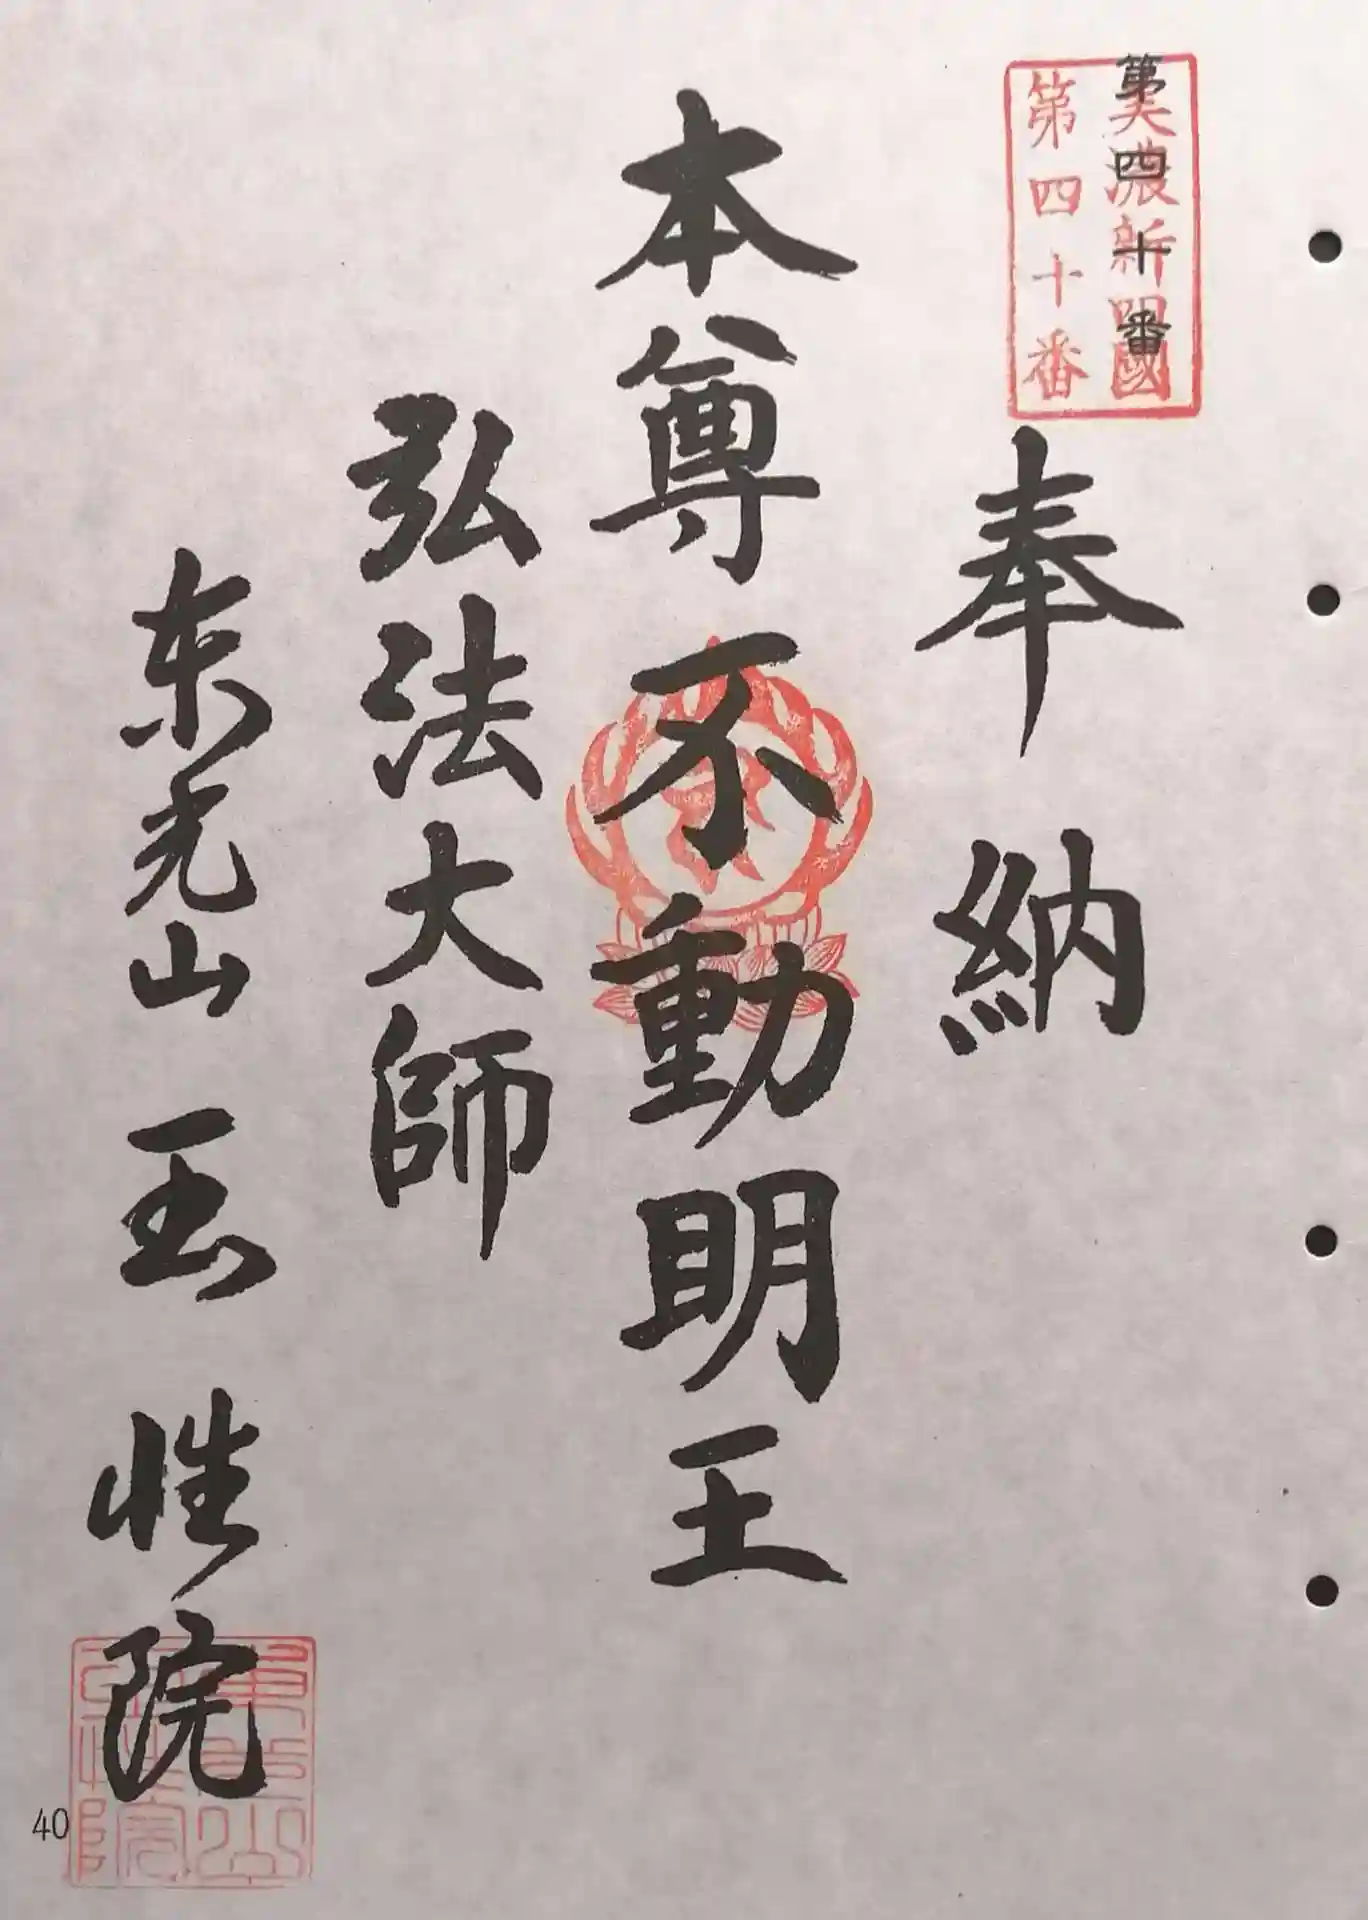 第四十番
美濃新四國
第四十番
奉納
本尊不動明王
弘法大師
東光山 玉性院
東光山
玉性院
40